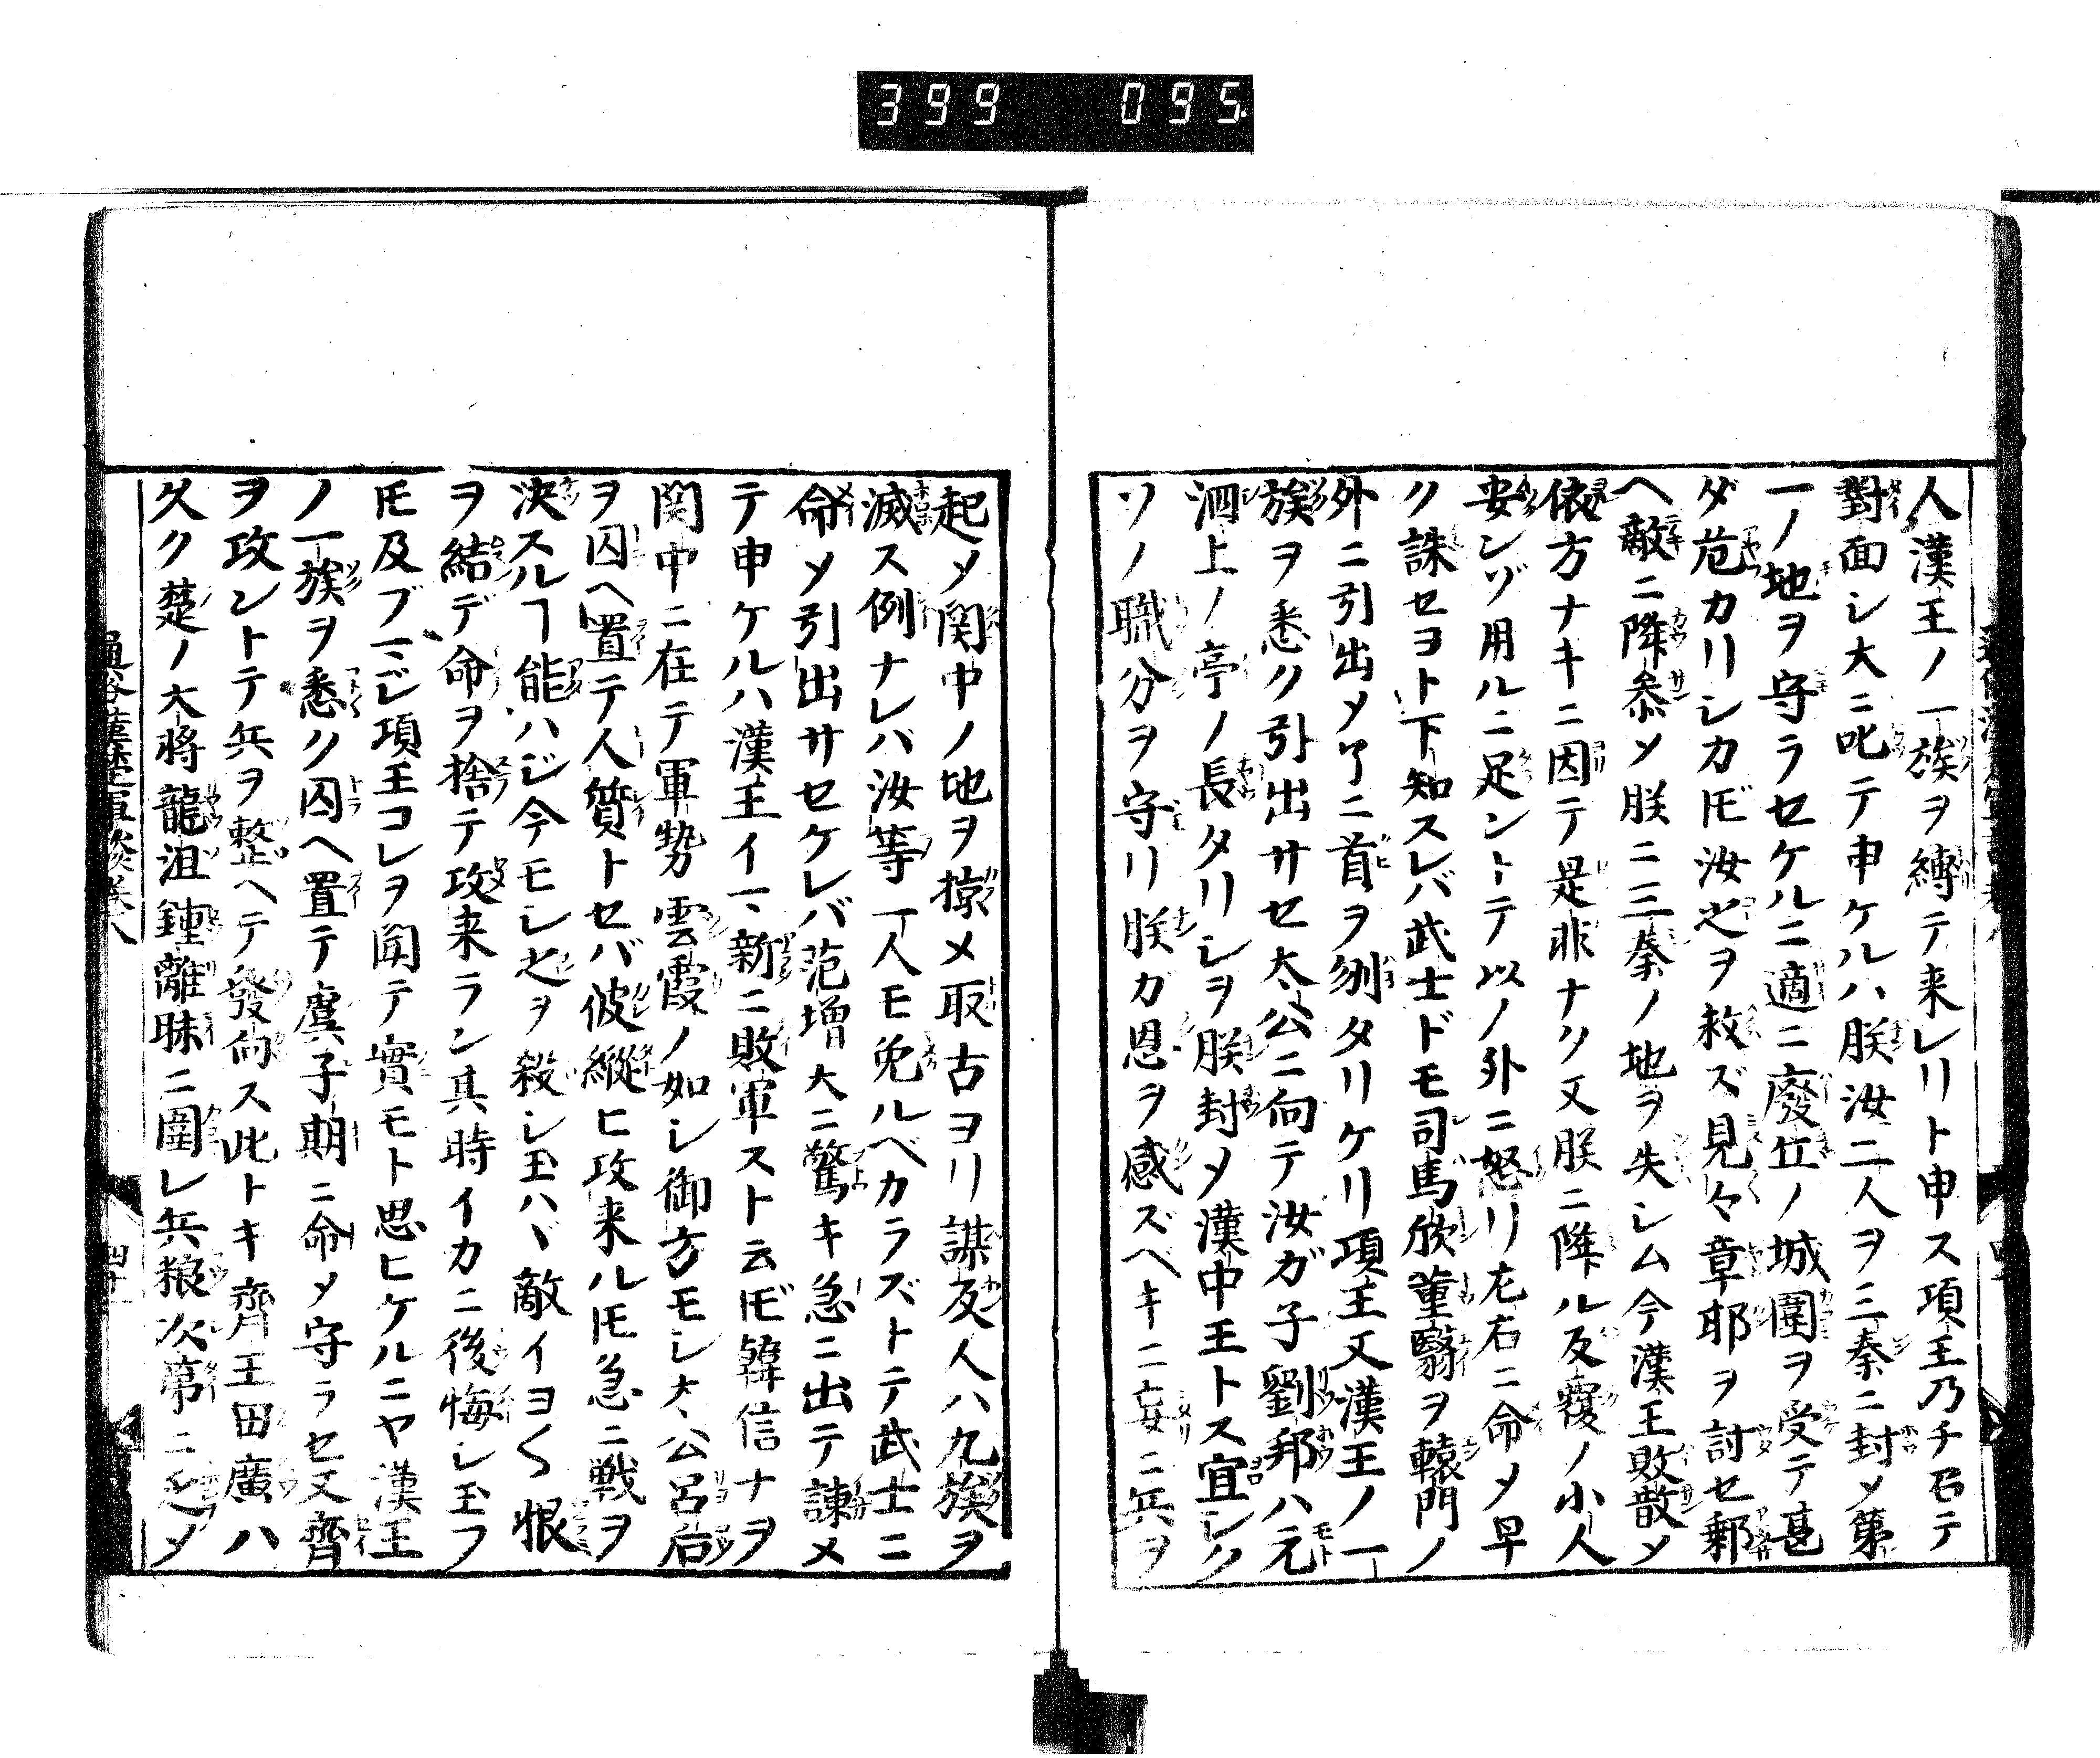 399 095
人漢王ノ一族ヲ縛テ来レリト申ス項王乃チ召テ
對面シ大ニ叱テ申ケルハ朕汝二人ヲ三秦ニ封メ第
一ノ地ヲ守ラセケルニ適ニ廢丘ノ城圍ヲ受テ甚
ダ危カリシカ𪜈汝之ヲ救ズ見々章邯ヲ討セ郤
ヘ敵ニ降参メ朕ニ三秦ノ地ヲ失シム今漢王敗散メ
依方ナキニ因テ是非ナク又朕ニ降ル反覆ノ小人
安ンゾ用ルニ足ントテ以ノ外ニ怒リ左右ニ命メ早
ク誅セヨト下知スレバ武士ドモ司馬欣董翳ヲ轅門ノ
外ニ引出メ了ニ首ヲ刎タリケリ項王又漢王ノ一
族ヲ悉ク引出サセ太公ニ向テ汝ガ子劉邦ハ元
泗上ノ亭ノ長タリシヲ朕封メ漢中王トス宜シク
ソノ職分ヲ守リ朕カ恩ヲ感ズヘキニ妄ニ兵ヲ
起メ関中ノ地ヲ掠メ取古ヨリ謀反人ハ九族ヲ
滅ス例ナレバ汝等一人モ免ルベカラズトテ武士ニ
命メ引出サセケレバ范増大ニ驚キ急ニ出テ諫メ
テ申ケルハ漢王イマ新ニ敗軍スト云𪜈韓信ナヲ
関中ニ在テ軍勢雲霞ノ如シ御方モシ太公呂后
ヲ囚ヘ置テ人質トセバ彼縦ヒ攻来ル𪜈急ニ戦ヲ
決スルヿ能ハジ今モシ之ヲ殺シ玉ハヾ敵イヨ〱恨
ヲ結デ命ヲ捨テ攻来ラン其時イカニ後悔シ玉フ
𪜈及ブマジ項王コレヲ聞テ實モト思ヒケルニヤ漢王
ノ一族ヲ悉ク囚ヘ置テ虞子期ニ命メ守ラセ又齊
ヲ攻ントテ兵ヲ整ヘテ發向ス此トキ齊王田廣ハ
久ク楚ノ大将龍沮鍾離昧ニ圍レ兵粮次第ニ乏メ
通俗漢楚軍談巻八
四十